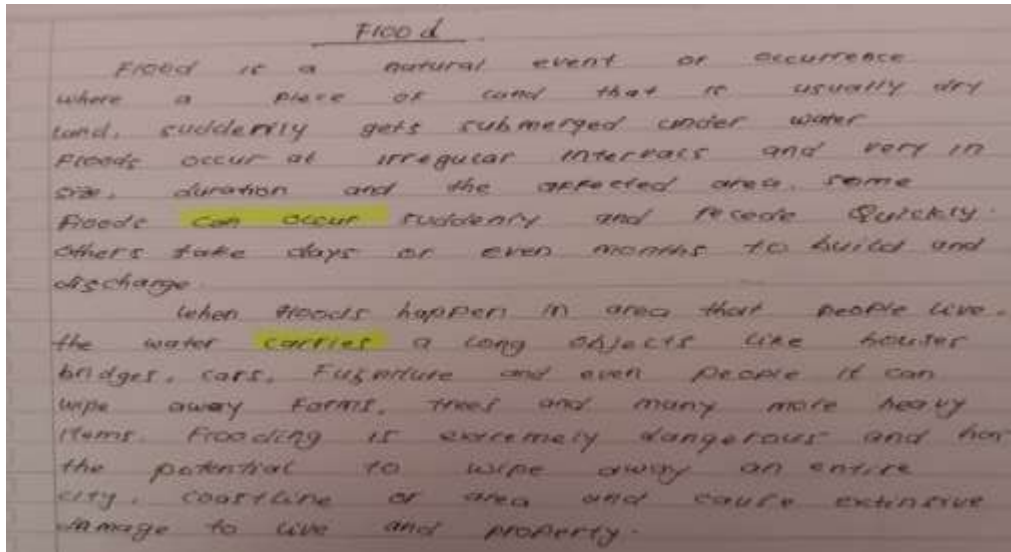 Flood
Flood is a natural event or occurrence
where a piece of land that is usually dry
land, suddenly gets submerged under water
Floods occur at irregular intervals and very in
size, duration and the affected area. Some
Floods can occur suddenly and recede Quickly.
Others take days or even months to build and
discharge.
When floods happen in area that people live.
the water carries a long objects like houses
bridges, cars, Furniture and even people it can
wipe away Farms, trees and many more heavy
Items. Flooding is extremely dangerous and has
the potential to wipe away an entire
city, coastline or area and cause extinsive
damage to live and property.